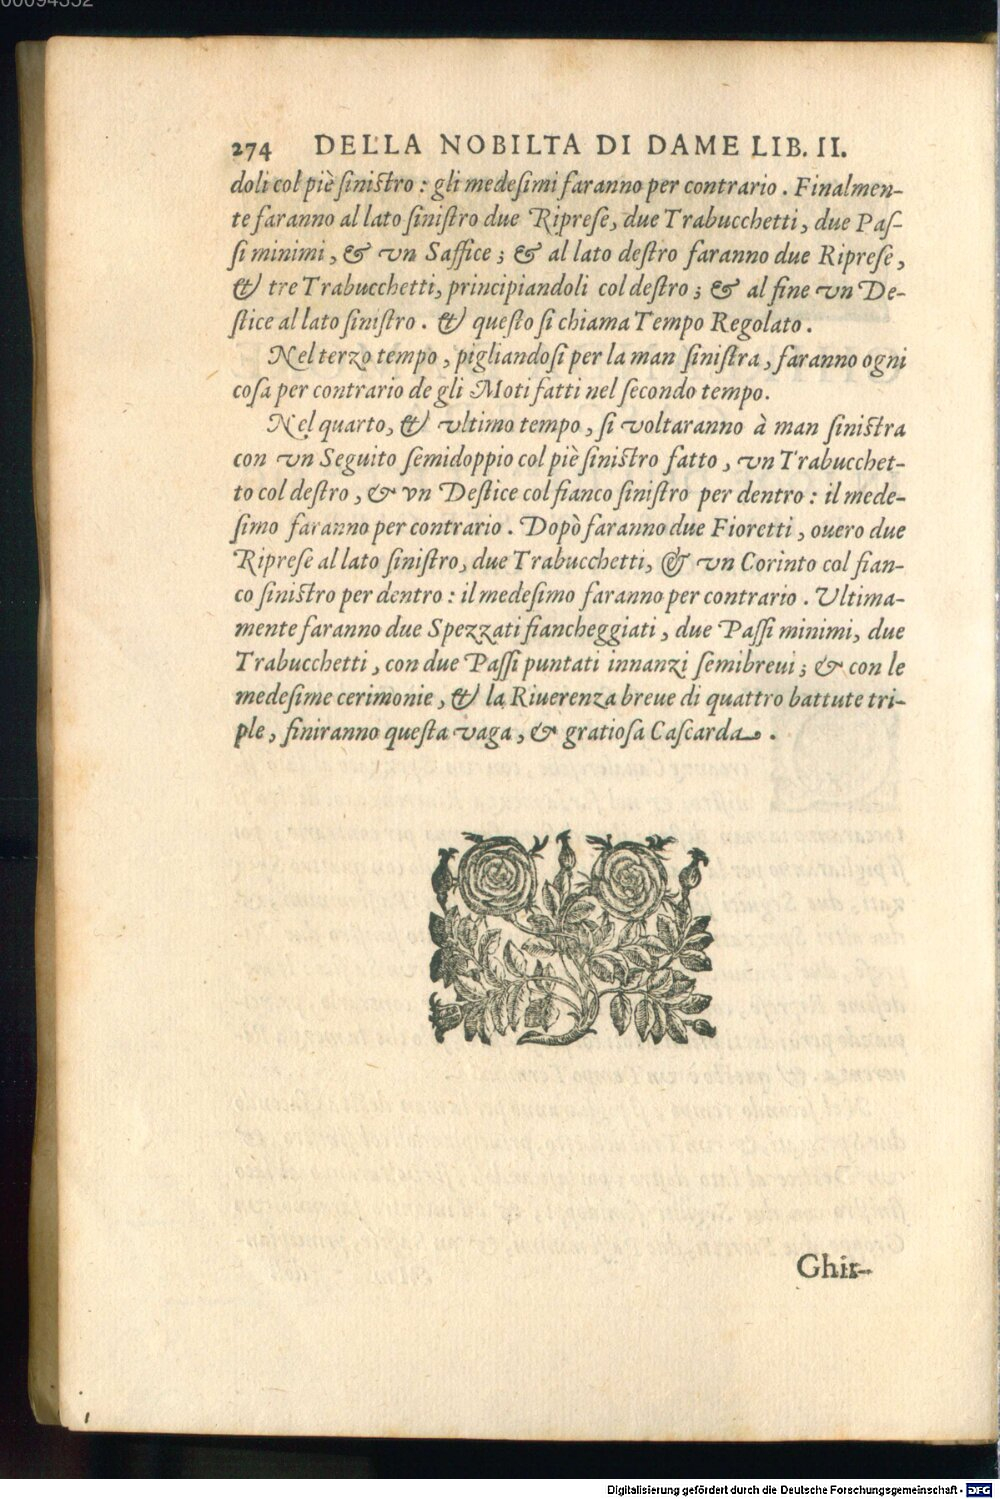 00094352
274 DELLA NOBILTA DI DAME LIB. II.
doli col piè ſiniſtro : gli medeſimi faranno per contrario . Finalmen-
te faranno al lato ſiniſtro due Ripreſe, due Trabucchetti, due Paſ-
ſi minimi, & vn Saffice ; & al lato deſtro faranno due Ripreſe,
& tre Trabucchetti, principiandoli col deſtro ; & al fine vn De-
ſtice al lato ſiniſtro . & queſto ſi chiama Tempo Regolato .
Nel terzo tempo, pigliandoſi per la man ſiniſtra, faranno ogni
coſa per contrario de gli Moti fatti nel ſecondo tempo.
Nel quarto, & vltimo tempo, ſi voltaranno à man ſiniſtra
con vn Seguito ſemidoppio col piè ſiniſtro fatto, vn Trabucchet-
to col deſtro, & vn Deſtice col fianco ſiniſtro per dentro : il mede-
ſimo faranno per contrario . Dopò faranno due Fioretti, ouero due
Ripreſe al lato ſiniſtro, due Trabucchetti, & vn Corinto col fian-
co ſiniſtro per dentro : il medeſimo faranno per contrario . Vltima-
mente faranno due Spezzati fiancheggiati, due Paſſi minimi, due
Trabucchetti, con due Paſſi puntati innanzi ſemibreui ; & con le
medeſime cerimonie, & la Riuerenza breue di quattro battute tri-
ple, finiranno queſta vaga, & gratioſa Caſcarda .
Ghir-
1
Digitalisierung gefördert durch die Deutsche Forschungsgemeinschaft - DFG